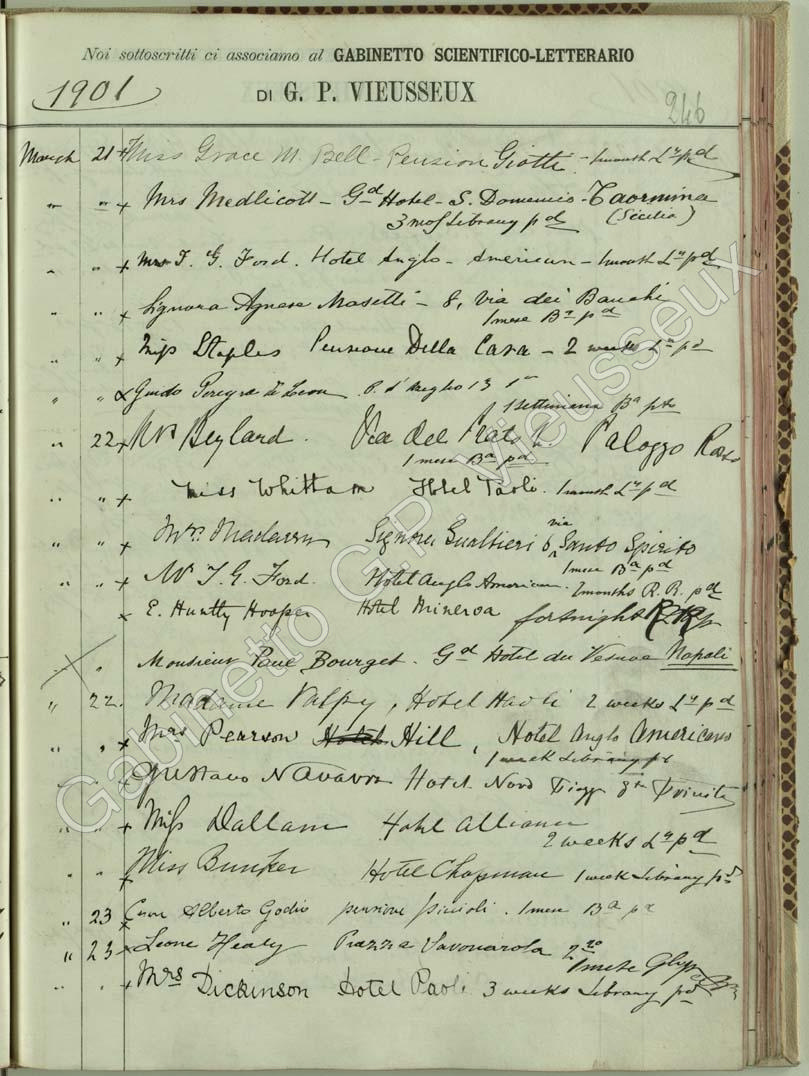 Noi sottoscritti ci associamo al GABINETTO SCIENTIFICO-LETTERARIO
1901
DI G. P. VIEUSSEUX
246
March 21 + Miss Grace M. Bell - Pension Giotti - 1 month Ly pd
" " + Mrs Medlicott - Gd Hotel - S. Domenico - Taormina
3 mos Library pd (Sicilia)
" " + Mrs T. G. Ford. Hotel Anglo - American - 1 month Ly pd
" " + Signora Agnese Masetti - 8, Via dei Banchi
1 mese Ba pd
" " + Miss Staples Pensione Della Cara - 2 weeks Ly pd
" " Guido De Leon P. d'Azeglio 13
1 Settimana Ba
" 22 + Mrs Beylard. Via del Prato Palozzo
1 mese Ba pd
" " + Miss Whittam Hotel Paoli. 1 month Ly pd
" " + Mrs. Signora Gualtieri 6 via Santo Spirito
1 mese Ba pd
" " + Mr T. G. Ford. Hotel Anglo American. 2 months R. R. pd
+ E. Huntly Hooper Hotel Minerva fortnight
" " Monsieur Paul Bourget. Gd Hotel du Vesuve Napoli
" 22. Madame Valpy, Hotel 2 weeks Ly pd
" " + Mrs Pearson Hill, Hotel Anglo Americano
1 week Library pd
" " + Gustavo Navarra Hotel Nord
" " + Miss Dallam Hotel Alliance
2 weeks Ly pd
+ Miss Bunker Hotel Chapman 1 week Library pd
" 23 Alberto Godio pensione 1 mese Ba pd
" 23 + Leone Healy Piazza Savonarola 2
1 mese
" " + Mrs Dickinson Hotel Paoli 3 weeks Library pd
Gabinetto G.P. Vieusseux